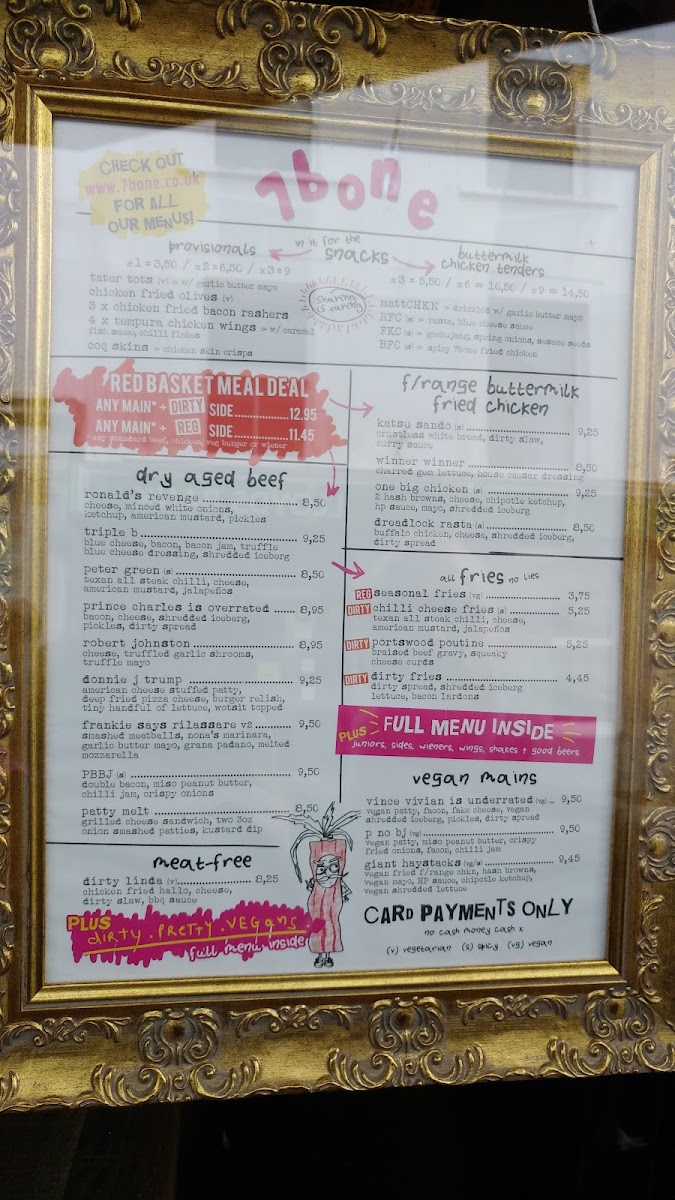 CHECK OUT
www.7bone.co.uk
FOR ALL
OUR MENUS!
7bone
in it for the
snacks
provisionals
x1 = 3,50 / x2 = 6,50 / x3 = 9
tater tots (v) > w/ garlic butter mayo
chicken fried olives (v)
3 x chicken fried bacon rashers
4 x tempura chicken wings > w/ caramel
fish sauce, chilli flakes
coq skins > chicken skin crisps
sharing is caring
buttermilk
chicken tenders
x3 = 5,50 / x6 = 10,50 / x9 = 14,50
mattCHKN > drizzled w/ garlic butter mayo
RFC (s) > rasta, blue cheese sauce
FKC (s) > gochujang, spring onions, sesame seeds
BFC (s) > spicy 7bone fried chicken
RED BASKET MEAL DEAL
ANY MAIN* + DIRTY SIDE 12.95
ANY MAIN* + REG SIDE 11.45
* any standard beef, chicken, veg burger or wiener
dry aged beef
ronald's revenge 8,50
cheese, minced white onions,
ketchup, american mustard, pickles
triple b 9,25
blue cheese, bacon, bacon jam, truffle
blue cheese dressing, shredded iceberg
peter green (s) 8,50
texan all steak chilli, cheese,
american mustard, jalapeños
prince charles is overrated 8,95
bacon, cheese, shredded iceberg,
pickles, dirty spread
robert johnston 8,95
cheese, truffled garlic shrooms,
truffle mayo
donnie j trump 9,25
american cheese stuffed patty,
deep fried pizza cheese, burger relish,
tiny handful of lettuce, wotsit topped
frankie says rilassare v2 9,50
smashed meatballs, nona's marinara,
garlic butter mayo, grana padano, melted
mozzarella
PBBJ (s) 9,50
double bacon, miso peanut butter,
chilli jam, crispy onions
patty melt 8,50
grilled cheese sandwich, two 3oz
onion smashed patties, kustard dip
meat-free
dirty linda (v) 8,25
chicken fried hallo, cheese,
dirty slaw, bbq sauce
PLUS
dirty.pretty.vegans
full menu inside
f/range buttermilk
fried chicken
katsu sando (s) 9,25
crustless white bread, dirty slaw,
curry sauce
winner winner 8,50
charred gem lettuce, house caesar dressing
one big chicken (s) 9,25
2 hash browns, cheese, chipotle ketchup,
hp sauce, mayo, shredded iceberg
dreadlock rasta (s) 8,50
buffalo chicken, cheese, shredded iceberg,
dirty spread
all fries no lies
REG seasonal fries (vg) 3,75
DIRTY chilli cheese fries (s) 5,25
texan all steak chilli, cheese,
american mustard, jalapeños
DIRTY portswood poutine 5,25
braised beef gravy, squeaky
cheese curds
DIRTY dirty fries 4,45
dirty spread, shredded iceberg
lettuce, bacon lardons
PLUS FULL MENU INSIDE
juniors, sides, wieners, wings, shakes + good beers
vegan mains
vince vivian is underrated (vg) 9,50
vegan patty, facon, fake cheese, vegan
shredded iceberg, pickles, dirty spread
p no bj (vg) 9,50
vegan patty, miso peanut butter, crispy
fried onions, facon, chilli jam
giant haystacks (vg/s) 9,45
vegan fried f/range chkn, hash browns,
vegan mayo, HP sauce, chipotle ketchup,
vegan shredded lettuce
CARD PAYMENTS ONLY
no cash money cash x
(v) vegetarian (s) spicy (vg) vegan